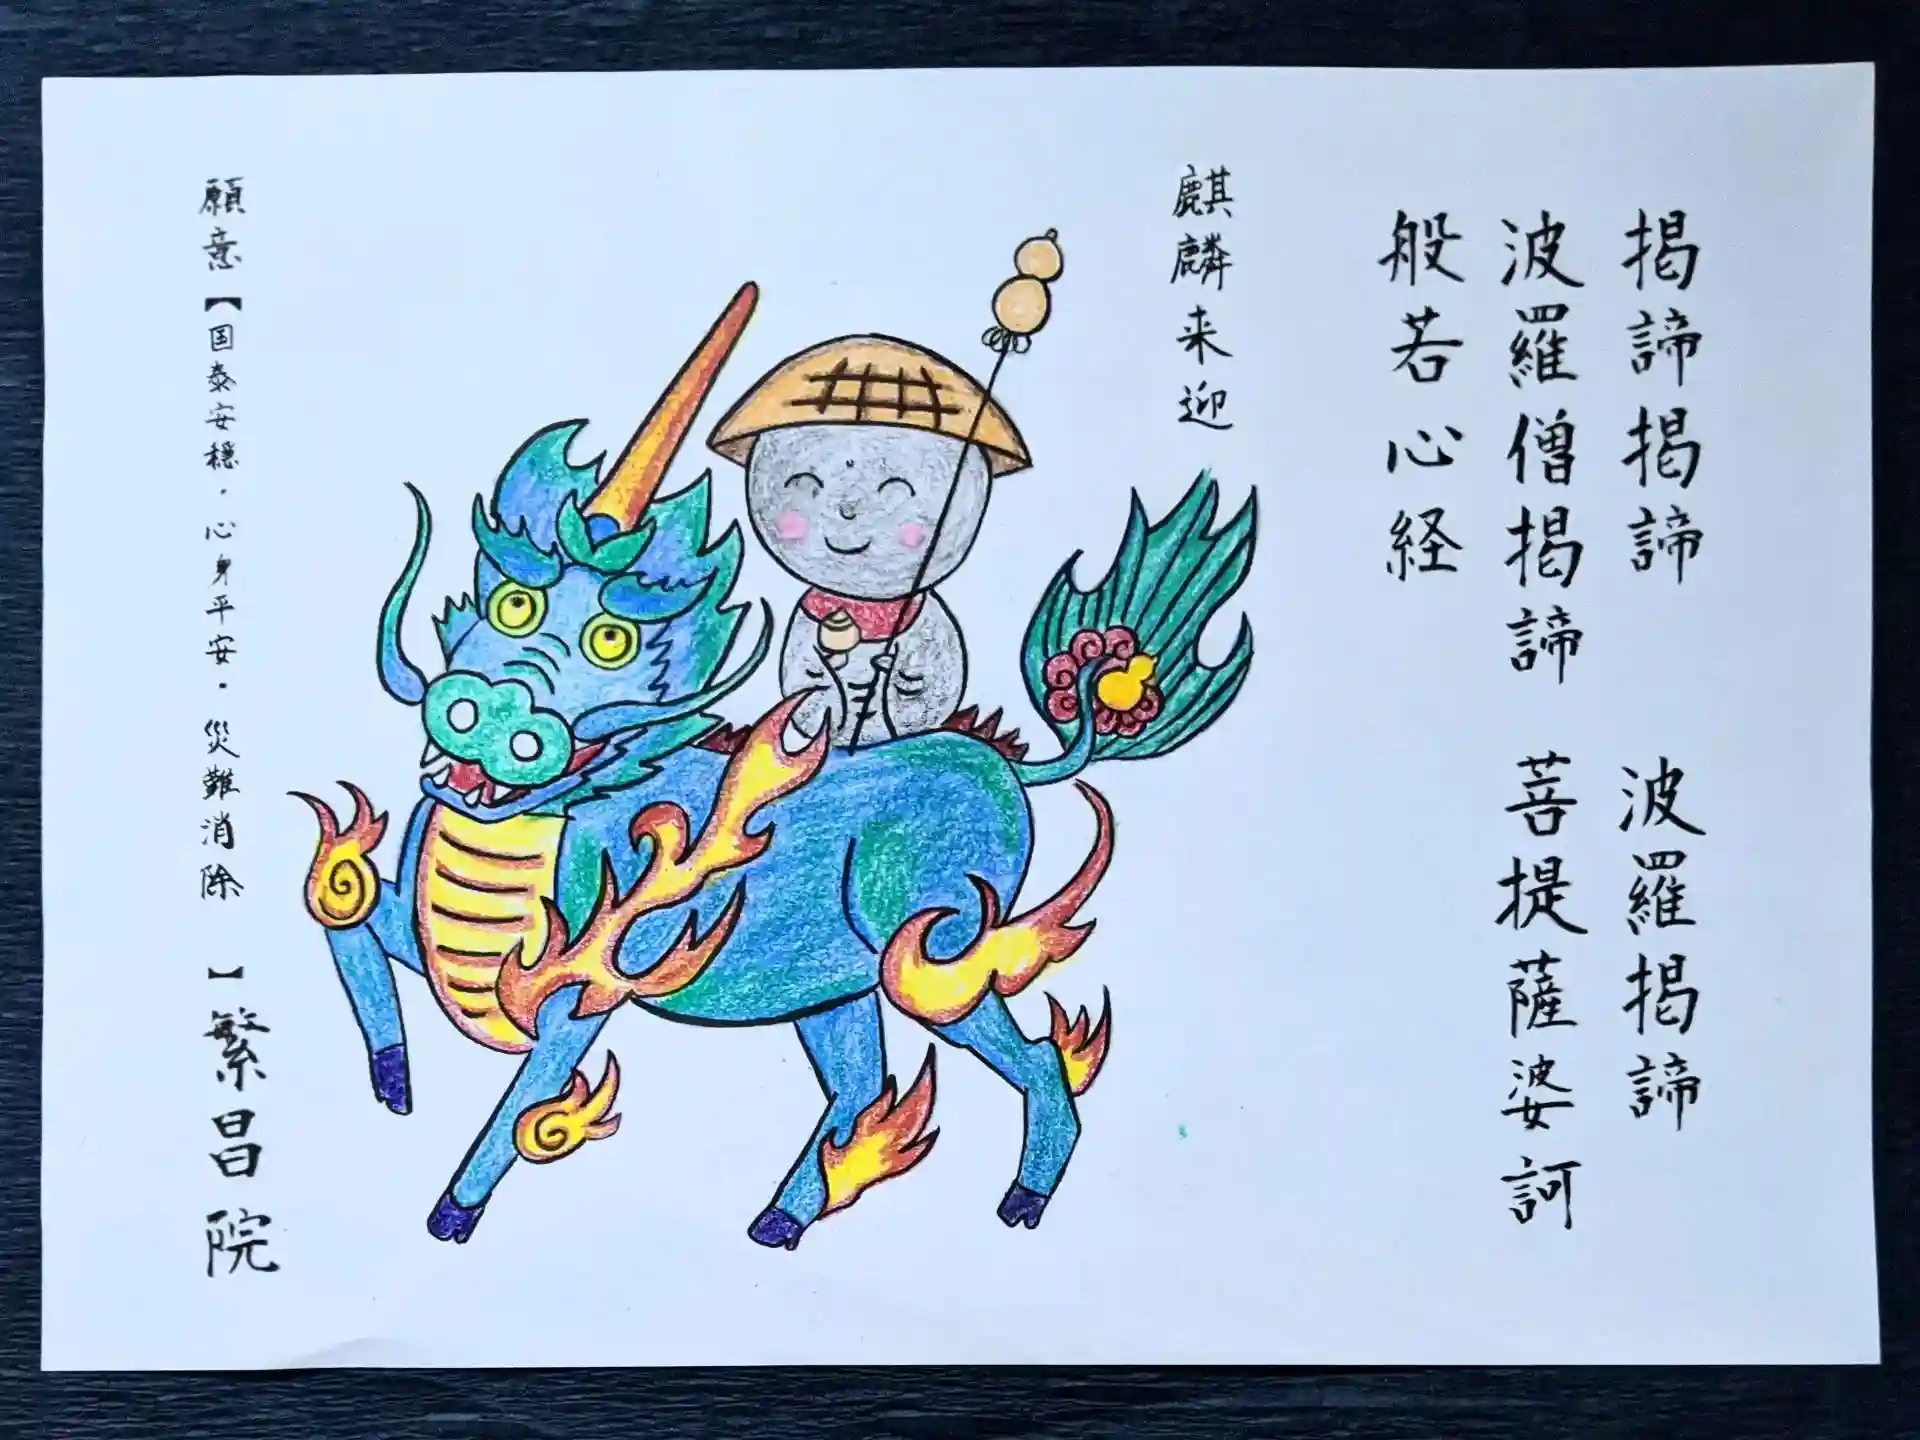 掲諦掲諦　波羅掲諦
波羅僧掲諦　菩提薩婆訶
般若心経
麒麟来迎
願意【国泰安穏・心身平安・災難消除　】繁昌院